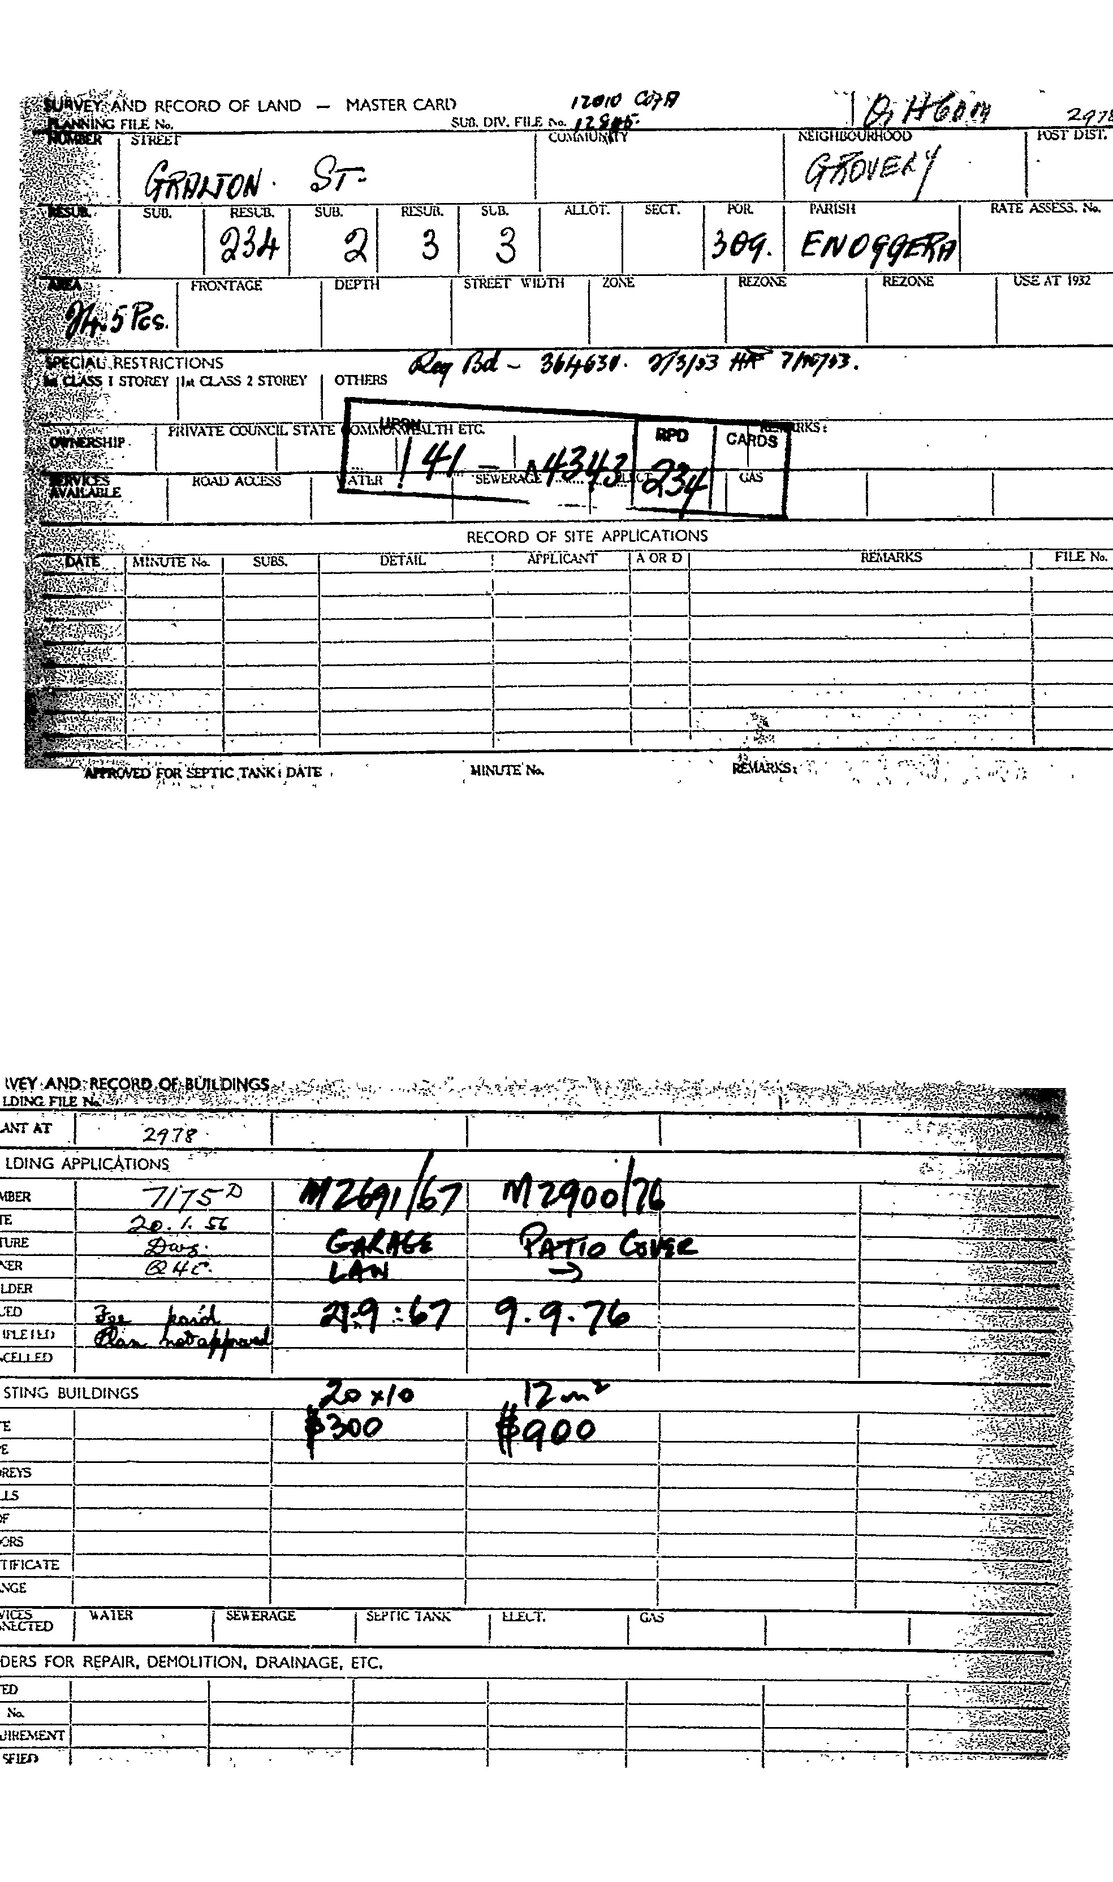 SURVEY AND RECORD OF LAND — MASTER CARD 12010
PLANNING FILE No. SUB. DIV. FILE No. 2978
NUMBER STREET COMMUNITY NEIGHBOURHOOD POST DIST.
GRALTON ST. GROVELY
RESUB. SUB. RESUB. SUB. RESUB. SUB. ALLOT. SECT. POR. PARISH RATE ASSESS. No.
234 2 3 3 309. ENOGGERA
AREA FRONTAGE DEPTH STREET WIDTH ZONE REZONE REZONE USE AT 1932
24.5 Pcs.
SPECIAL RESTRICTIONS Reg Bd - 364630. 2/3/53
1st CLASS 1 STOREY 1st CLASS 2 STOREY OTHERS
OWNERSHIP PRIVATE COUNCIL STATE COMMONWEALTH ETC. REMARKS:
UPRN RPD CARDS
141 - 4343 234
SERVICES AVAILABLE ROAD ACCESS WATER SEWERAGE ELECT. GAS
RECORD OF SITE APPLICATIONS
DATE MINUTE No. SUBS. DETAIL APPLICANT A OR D REMARKS FILE No.
APPROVED FOR SEPTIC TANK: DATE MINUTE No. REMARKS:
VEY AND RECORD OF BUILDINGS
LDING FILE No.
ANT AT 2978
LDING APPLICATIONS
MBER 7175D M2691/67 M2900/76
TE 20.1.56
TURE Dwg. GARAGE PATIO COVER
NER Q H C. LAW →
LDER
UED Fee paid 21.9.67 9.9.76
MPLETED Plan not approved
CELLED
STING BUILDINGS 20 x 10 12 m²
TE $300 $900
PE
REYS
LLS
OF
ORS
TIFICATE
NGE
VICES NNECTED WATER SEWERAGE SEPTIC TANK ELECT. GAS
DERS FOR REPAIR, DEMOLITION, DRAINAGE, ETC.
TED
No.
UIREMENT
SFIED